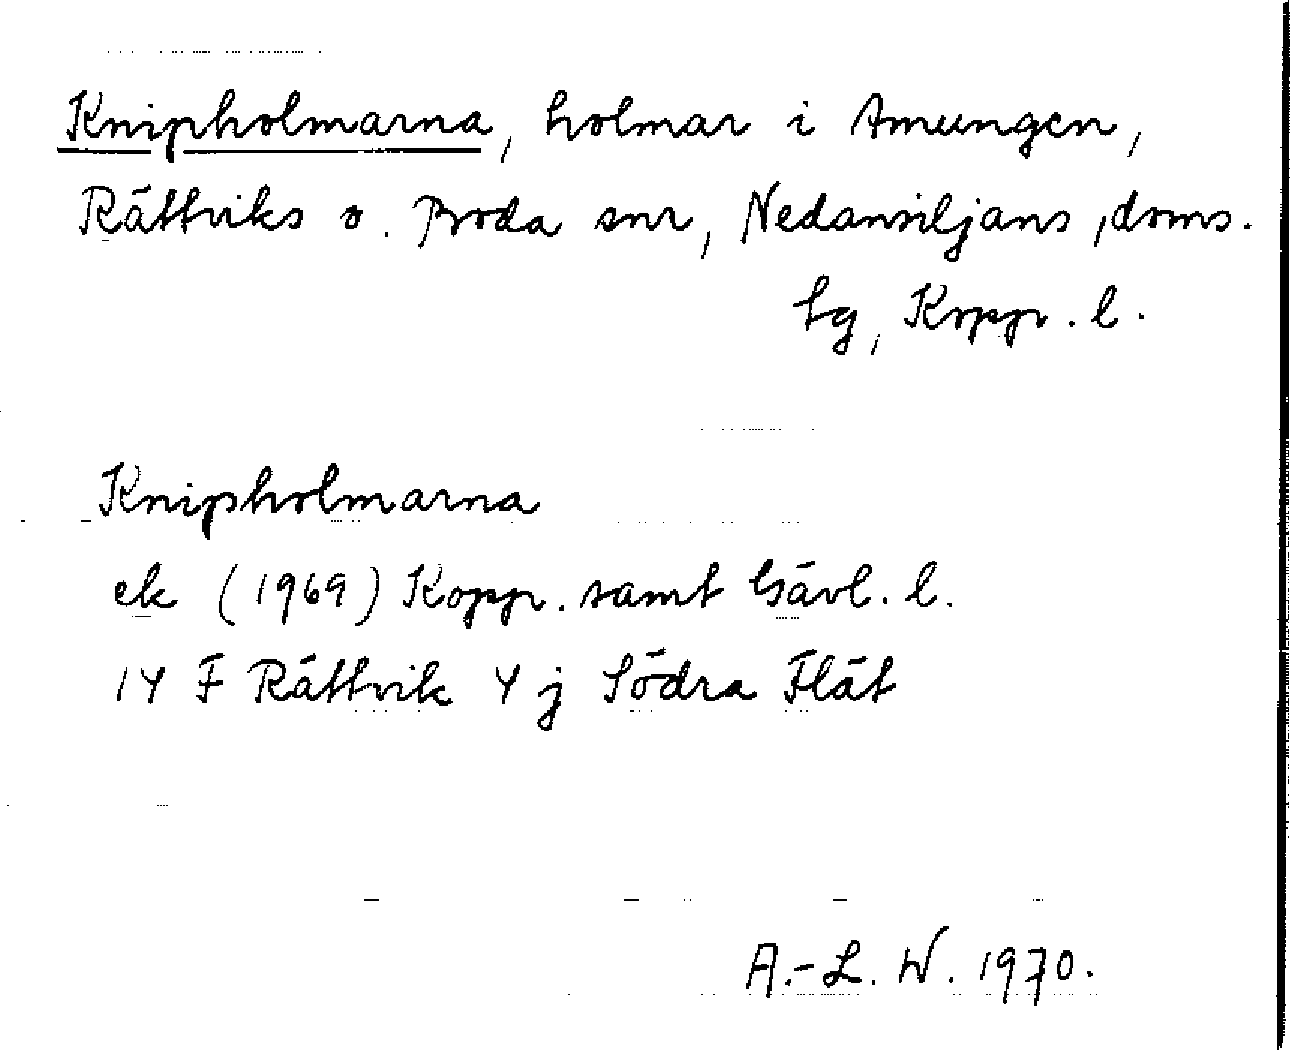 Knipholmarna, holmar i Amungen,
Rättviks o. Boda snr, Nedansiljans doms.
sg, Kopp. l.
Knipholmarna
ek (1969) Kopp. samt Gävl. l.
14 F Rättvik 4 j Södra Flät
A.-L. W. 1970.